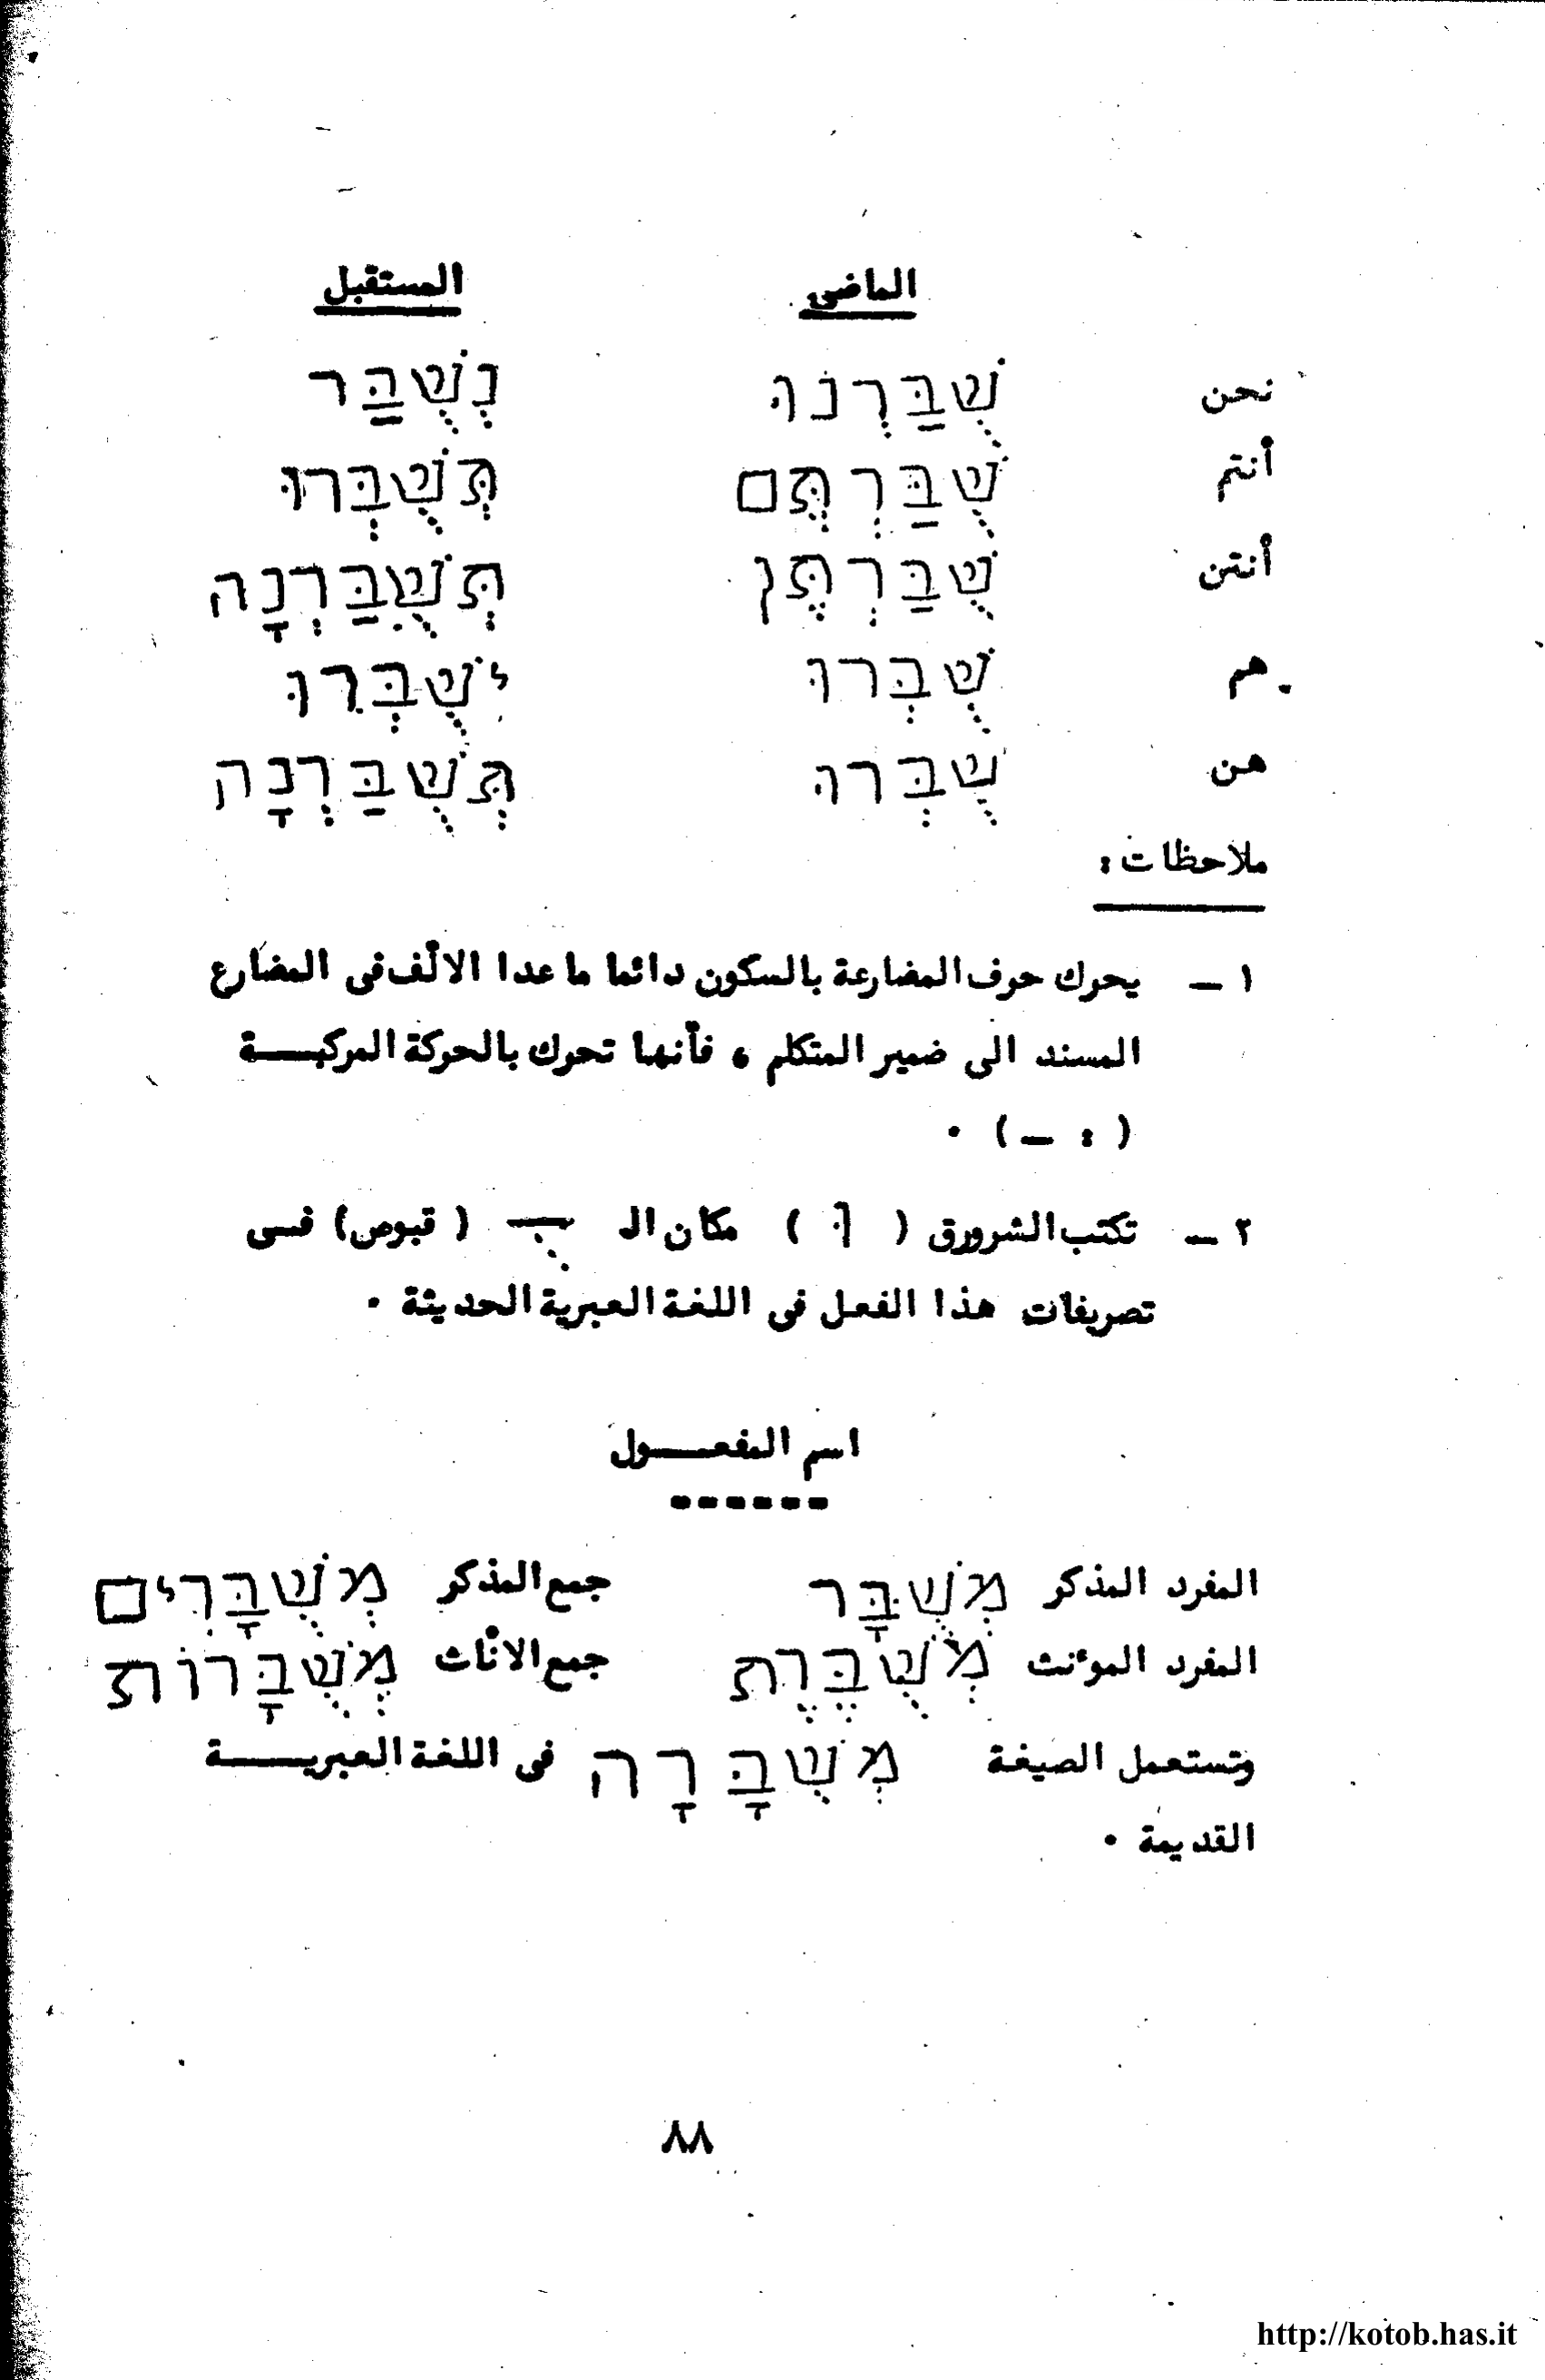 الماضى المستقبل
نحن שֻׁבַּרְנוּ נְשֻׁבַּר
أنتم שֻׁבַּרְתֶּם תְּשֻׁבְּרוּ
أنتن שֻׁבַּרְתֶּן תְּשֻׁבַּרְנָה
هم שֻׁבְּרוּ יְשֻׁבְּרוּ
هن שֻׁבְּרוּ תְּשֻׁבַּרְנָה
ملاحظات :
١ – يحرك حرف المضارعة بالسكون دائما ما عدا الالٔف فى المضارع
المسند الى ضمير المتكلم ، فأنها تحرك بالحركة المركبـــة
( : – ) ٠
٢ – تكتب الشرورق ( וּ ) مكان الـ ـُ ( قبوص ) فــى
تصريفات هذا الفعل فى اللغة العبرية الحديثة ٠
اسم المفعـــول
------
المفرد المذكر מְשֻׁבָּר جمع المذكر מְשֻׁבָּרִים
المفرد الموٴنث מְשֻׁבֶּרֶת جمع الانٔاث מְשֻׁבָּרוֹת
وتستعمل الصيغة מְשֻׁבָּרָה فى اللغة العبريـــة
القديمة ٠
٨٨
http://kotob.has.it